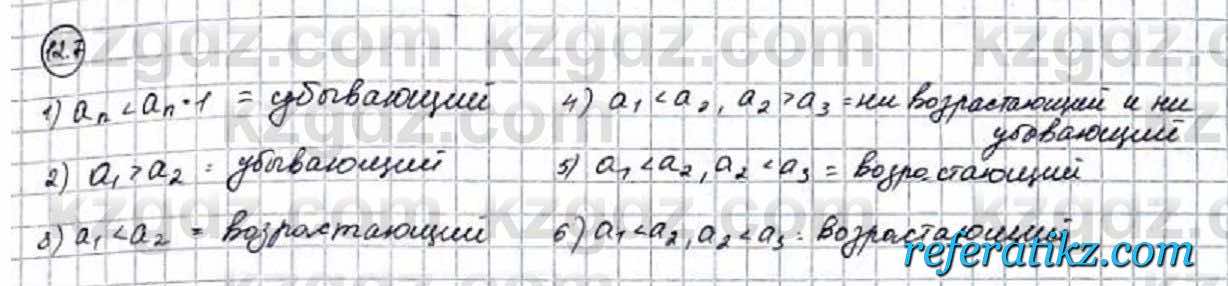 12.7
1) aₙ < aₙ · 1 = убывающий
2) a₁ > a₂ = убывающий
3) a₁ < a₂ = возрастающий
4) a₁ < a₂, a₂ > a₃ = ни возрастающий и ни
убывающий
5) a₁ < a₂, a₂ < a₃ = возрастающий
6) a₁ < a₂, a₂ < a₃ = возрастающий
referatikz.com
kzgdz.com kzgdz.com kzgdz.com
kzgdz.com kzgdz.com kzgdz.com